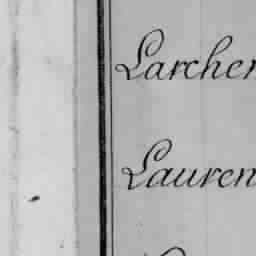 Larcher
Lauren